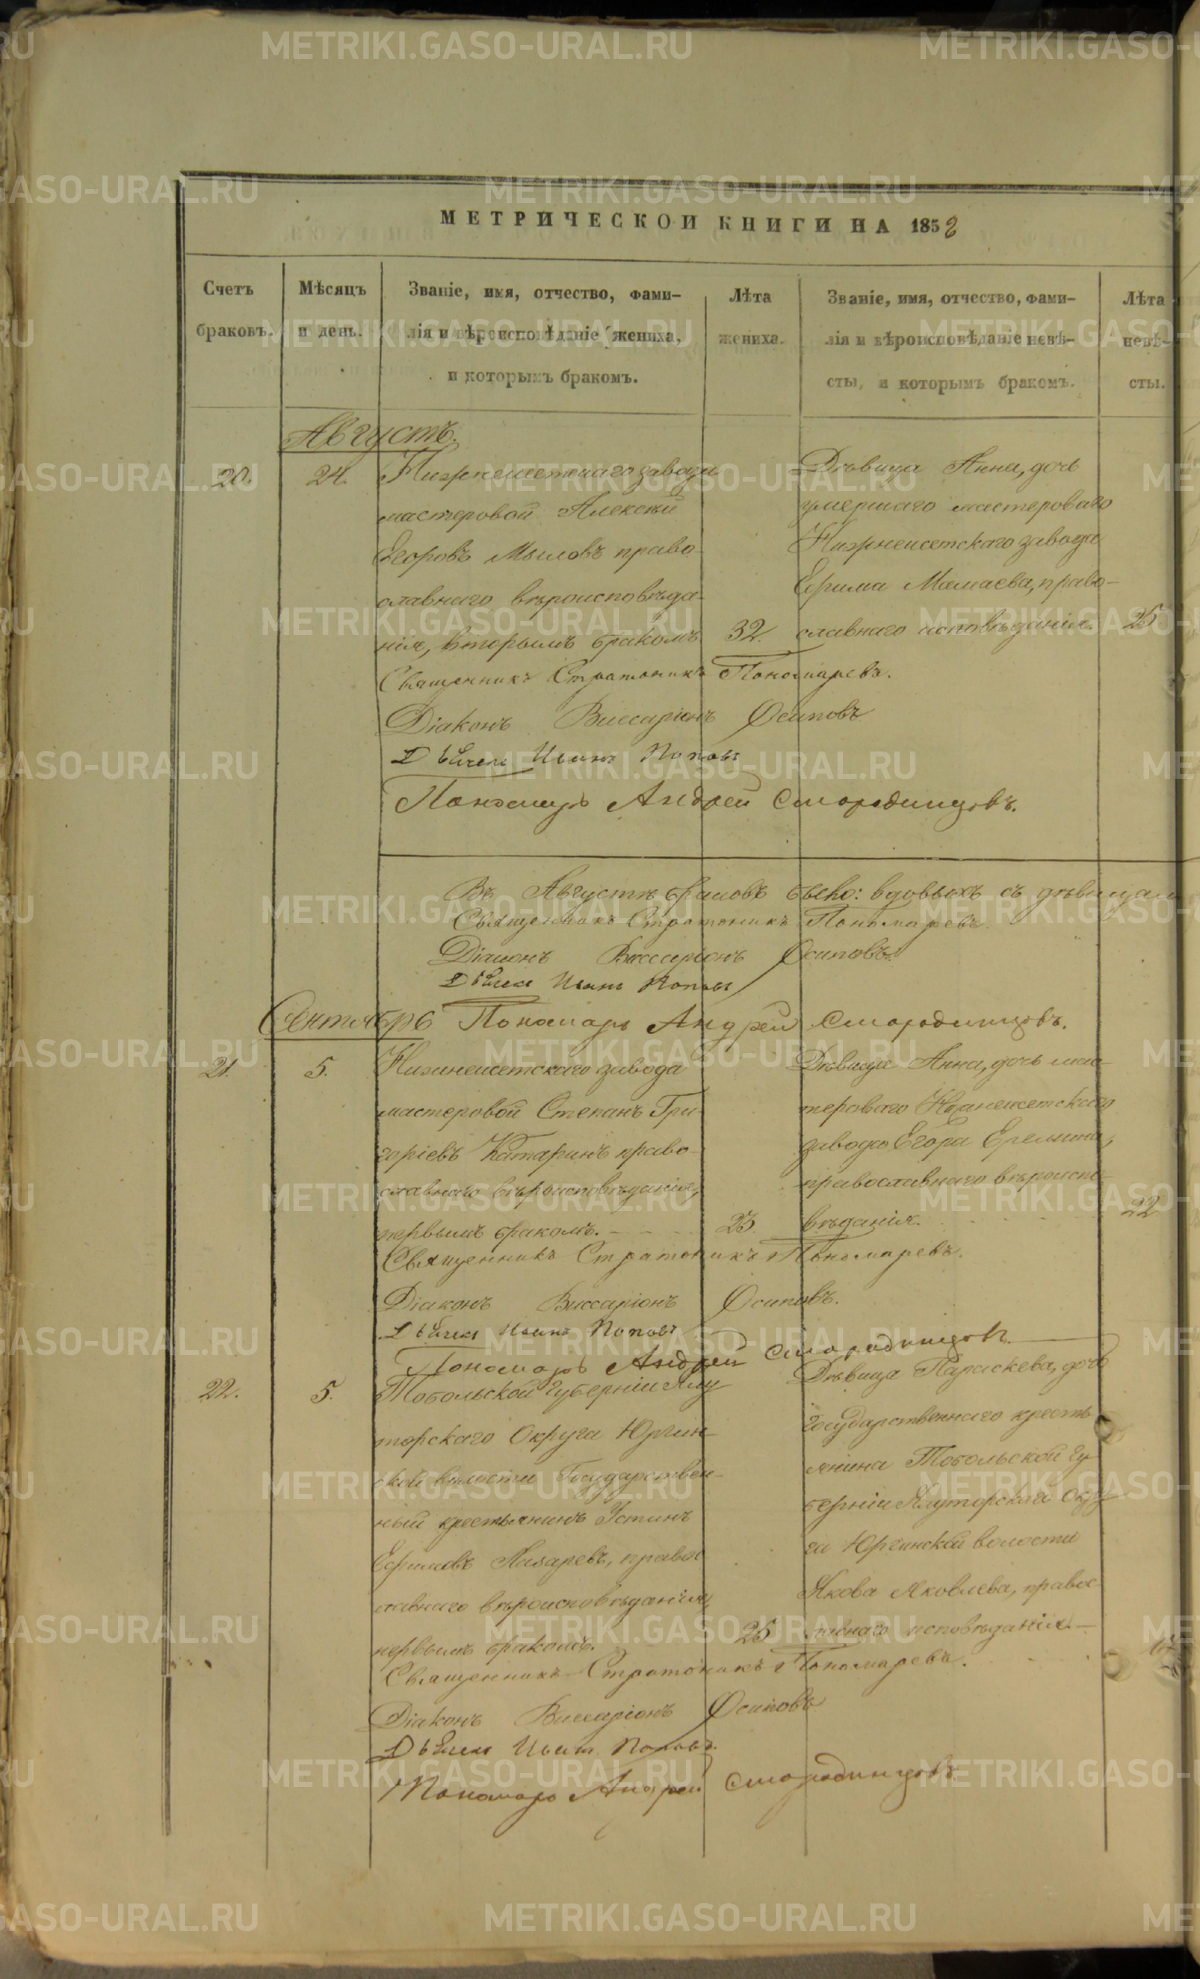 МЕТРИЧЕСКОЙ КНИГИ НА 1858
Счетъ браковъ.
Мѣсяцъ и день.
Званіе, имя, отчество, фами-
лія и вѣроисповѣданіе жениха,
и которымъ бракомъ.
Лѣта жениха.
Званіе, имя, отчество, фами-
лія и вѣроисповѣданіе невѣ-
сты, и которымъ бракомъ.
Лѣта невѣ-
сты.
Августъ.
20.
24.
Нижнеисетскаго завода
мастеровой Алексѣй
Егоровъ Мыловъ право
славнаго вѣроисповѣда
нія, вторымъ бракомъ
32.
Дѣвица Анна, дочь
умершаго мастероваго
Нижнеисетскаго завода
Ефима Мамаева, право-
славнаго исповѣданія.
25
Священникъ Стратоникъ Пономаревъ.
Діаконъ Виссаріонъ Осиповъ
Дьячекъ Иванъ Поповъ
Пономарь Андрей Смородинцовъ.
Въ Августѣ браковъ было: вдовыхъ съ дѣвицами
Священникъ Стратоникъ Пономаревъ.
Діаконъ Виссаріонъ Осиповъ
Дьячекъ Иванъ Поповъ
Пономарь Андрей Смородинцовъ.
Сентябрь
21.
5.
Нижнеисетскаго завода
мастеровой Степанъ Гри
горіевъ Катаринъ право
славнаго вѣроисповѣданія,
первымъ бракомъ.
23.
Дѣвица Анна, дочь мас
тероваго Нижнеисетскаго
завода Егора Еремина,
православнаго вѣроиспо-
вѣданія.
22
Священникъ Стратоникъ Пономаревъ.
Діаконъ Виссаріонъ Осиповъ.
Дьячекъ Иванъ Поповъ
Пономарь Андрей Смородинцовъ.
22.
5.
Тобольской губерніи Ялу
торскаго Округа Юргин-
ской волости Государствен-
ный крестьянинъ Устинъ
Ефимовъ Назаревъ, правос
лавнаго вѣроисповѣданія,
первымъ бракомъ.
25
Дѣвица Параскева, дочь
государственнаго кресть
янина Тобольской гу
берніи Ялуторскаго Окру
га Юргинской волости
Якова Яковлева, правос
лавнаго исповѣданія.
Священникъ Стратоникъ Пономаревъ.
Діаконъ Виссаріонъ Осиповъ
Дьячекъ Иванъ Поповъ.
Пономарь Андрей Смородинцовъ
METRIKI.GASO-URAL.RU